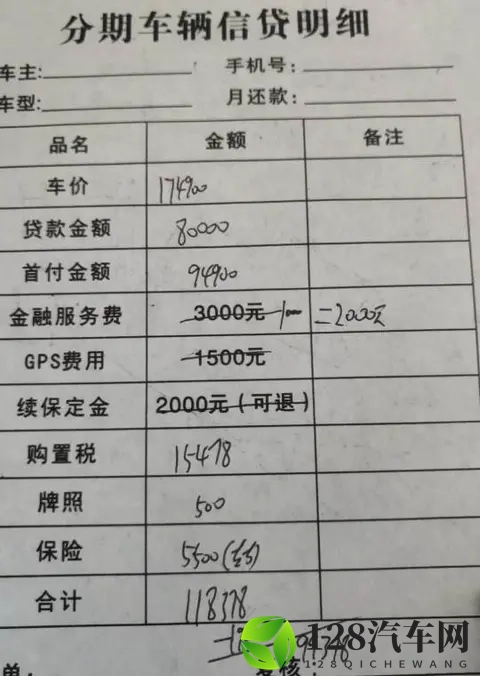 分期车辆信贷明细
车主: 手机号:
车型: 月还款:
品名 金额 备注
车价 174900
贷款金额 80000
首付金额 94900
金融服务费 3000元 =2000元
GPS费用 1500元
续保定金 2000元(可退)
购置税 15478
牌照 500
保险 5500
合计 118378
单: 复核:
128汽车网
128QICHEWANG